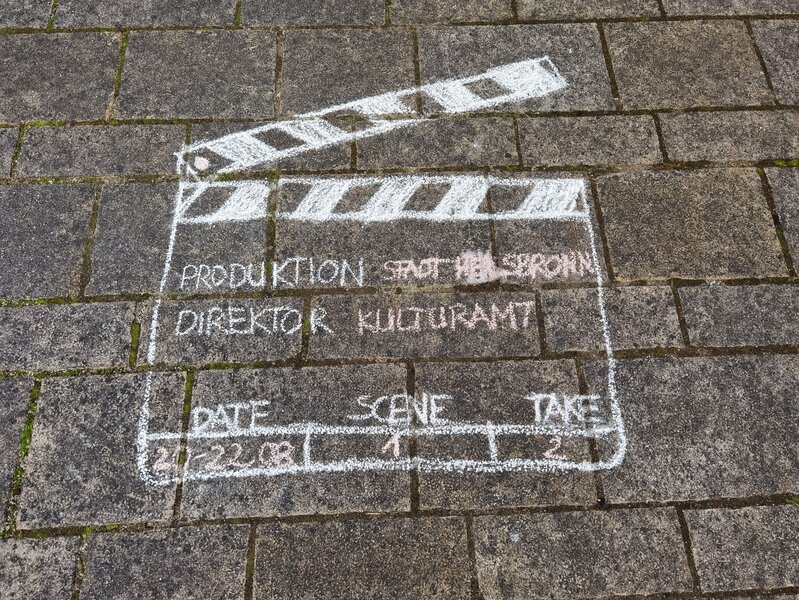 PRODUKTION STADT HEILSBRONN
DIREKTOR KULTURAMT
DATE SCENE TAKE
21-22.08 1 2